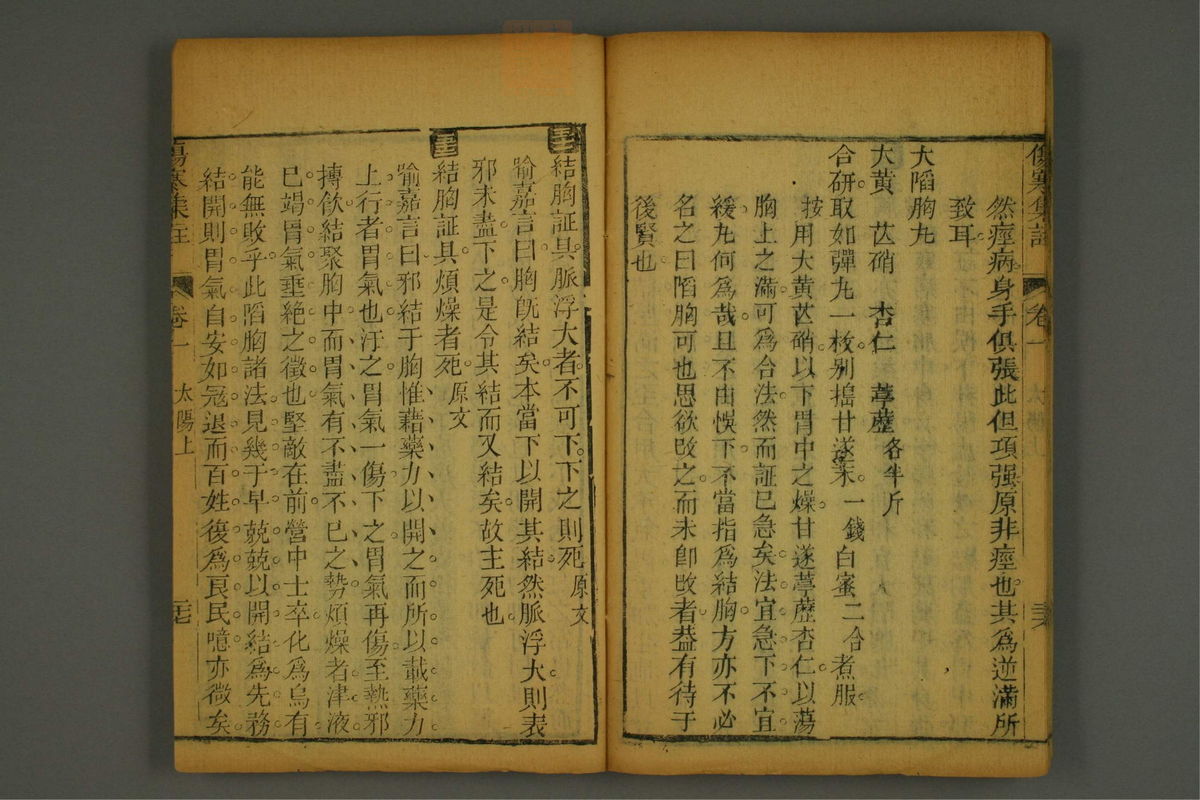 傷寒集註 卷一 太陽上
然痙病身手俱張此但項强原非痙也其爲逆滿所
致耳
大陷胸丸
大黃 芒硝 杏仁 葶藶各半斤
合研取如彈丸一枚别搗甘遂末一錢白蜜二合煮服
按用大黃芒硝以下胃中之燥甘遂葶藶杏仁以蕩
胸上之滿可爲合法然而証已急矣法宜急下不宜
緩丸何爲哉且不由悞下不當指爲結胸方亦不必
名之曰陷胸可也愚欲改之而未卽改者葢有待于
後賢也
結胸証具脈浮大者不可下下之則死原文
喻嘉言曰胸旣結矣本當下以開其結然脈浮大則表
邪未盡下之是令其結而又結矣故主死也
結胸証具煩燥者死原文
喻嘉言曰邪結于胸惟藉藥力以開之而所以載藥力
上行者胃氣也汗之胃氣一傷下之胃氣再傷至熱邪
搏飮結聚胸中而胃氣有不盡不已之勢煩燥者津液
已竭胃氣垂絶之徵也堅敵在前營中士卒化爲烏有
能無敗乎此陷胸諸法見幾于早兢兢以開結爲先務
結開則胃氣自安如冦退而百姓復爲良民噫亦微矣
傷寒集註 卷一 太陽上